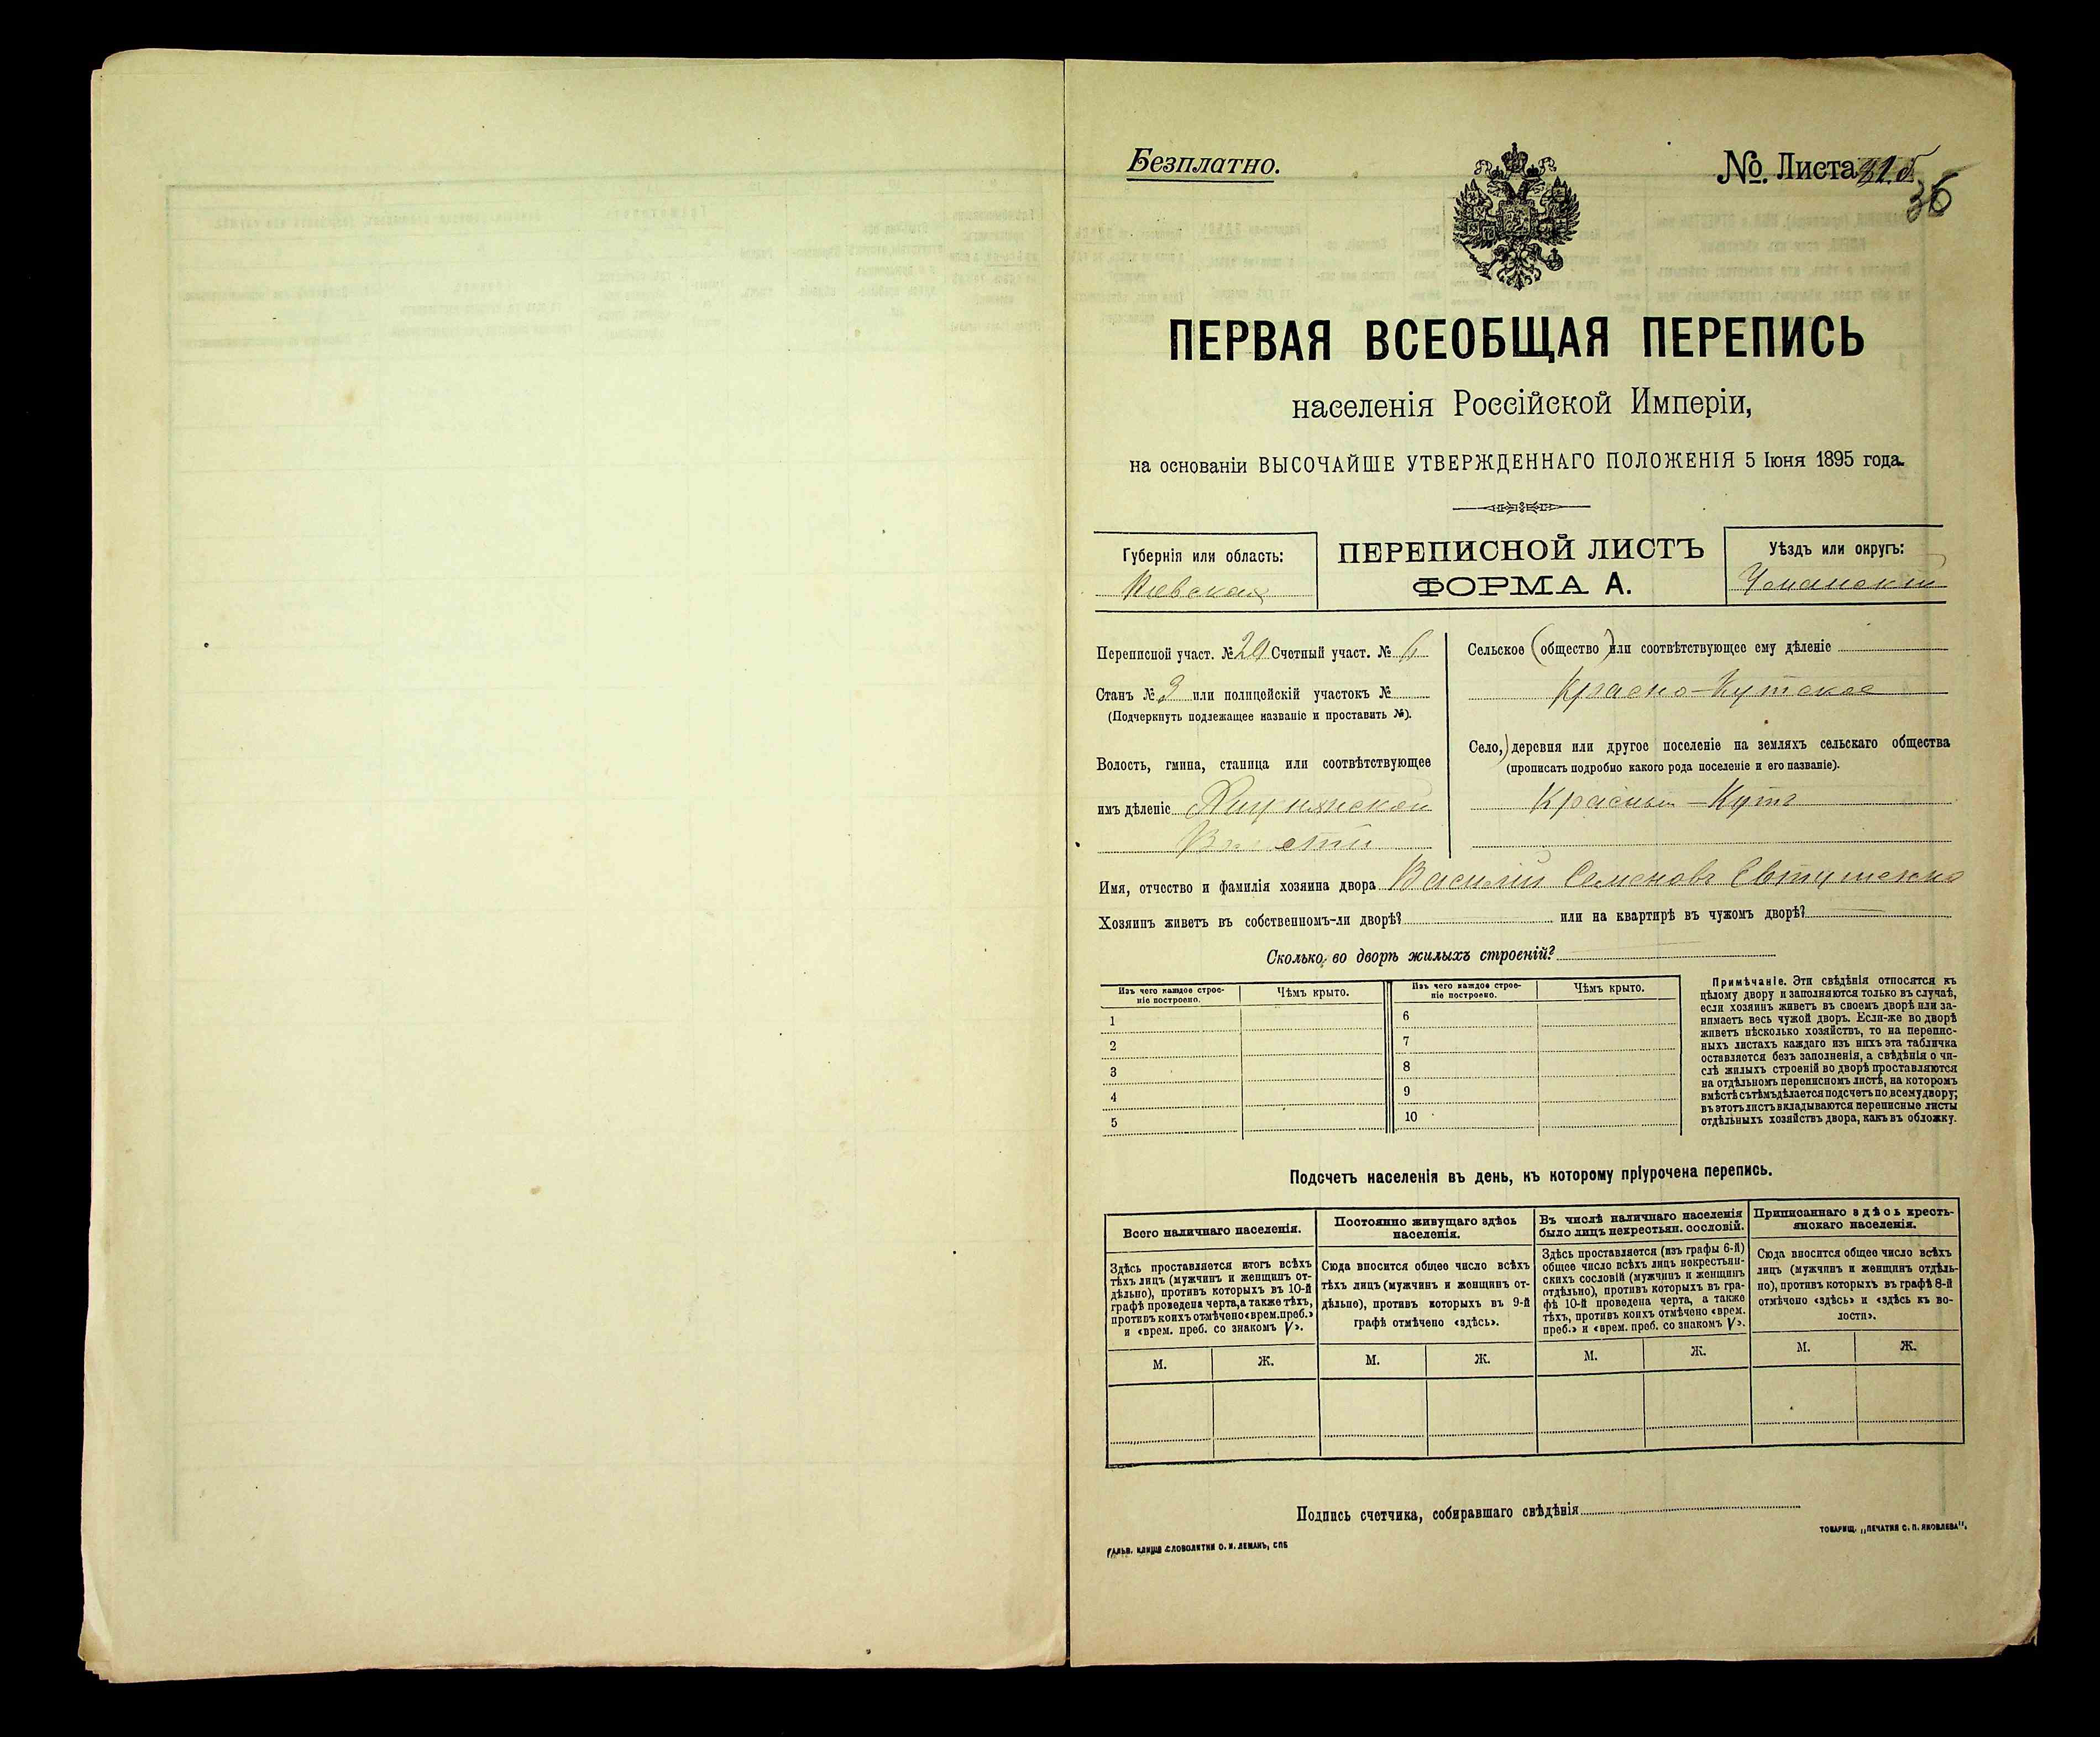 Безплатно.
№ Листа 31.б
36
ПЕРВАЯ ВСЕОБЩАЯ ПЕРЕПИСЬ
населенія Россійской Имперіи,
на основаніи ВЫСОЧАЙШЕ УТВЕРЖДЕННАГО ПОЛОЖЕНІЯ 5 Іюня 1895 года.
Губернія или область:
Кіевская
ПЕРЕПИСНОЙ ЛИСТЪ
ФОРМА А.
Уѣздъ или округъ:
Уманскій
Переписной участ. № 20 Счетный участ. № 6
Станъ № 3 или полицейскій участокъ №
(Подчеркнуть подлежащее названіе и проставить №).
Волость, гмина, станица или соотвѣтствующее
имъ дѣленіе
Волости
Сельское (общество) или соотвѣтствующее ему дѣленіе
Красно-Кутское
Село,) деревня или другое поселеніе на земляхъ сельскаго общества
(прописать подробно какого рода поселеніе и его названіе).
Красный-Кутъ
Имя, отчество и фамилія хозяина двора Василій Семеновъ Евтушенко
Хозяинъ живетъ въ собственномъ-ли дворѣ? или на квартирѣ въ чужомъ дворѣ?
Сколько во дворѣ жилыхъ строеній?
Изъ чего каждое строе-
ніе построено.
Чѣмъ крыто.
Изъ чего каждое строе-
ніе построено.
Чѣмъ крыто.
1
2
3
4
5
6
7
8
9
10
Примѣчаніе. Эти свѣдѣнія относятся къ
цѣлому двору и заполняются только въ случаѣ,
если хозяинъ живетъ въ своемъ дворѣ или за-
нимаетъ весь чужой дворъ. Если-же во дворѣ
живетъ нѣсколько хозяйствъ, то на перепис-
ныхъ листахъ каждаго изъ нихъ эта табличка
оставляется безъ заполненія, а свѣдѣнія о чи-
слѣ жилыхъ строеній во дворѣ проставляются
на отдѣльномъ переписномъ листѣ, на которомъ
вмѣстѣ съ тѣмъ дѣлается подсчетъ по всему двору;
въ этотъ листъ вкладываются переписные листы
отдѣльныхъ хозяйствъ двора, какъ въ обложку.
Подсчетъ населенія въ день, къ которому пріурочена перепись.
Всего наличнаго населенія.
Здѣсь проставляется итогъ всѣхъ
тѣхъ лицъ (мужчинъ и женщинъ от-
дѣльно), противъ которыхъ въ 10-й
графѣ проведена черта, а также тѣхъ,
противъ коихъ отмѣчено «врем. преб.»
и «врем. преб. со знакомъ V».
Постоянно живущаго здѣсь
населенія.
Сюда вносится общее число всѣхъ
тѣхъ лицъ (мужчинъ и женщинъ от-
дѣльно), противъ которыхъ въ 9-й
графѣ отмѣчено «здѣсь».
Въ числѣ наличнаго населенія
было лицъ некрестьян. сословій.
Здѣсь проставляется (изъ графы 6-й)
общее число всѣхъ лицъ некрестьян-
скихъ сословій (мужчинъ и женщинъ
отдѣльно), противъ которыхъ въ гра-
фѣ 10-й проведена черта, а также
тѣхъ, противъ коихъ отмѣчено «врем.
преб.» и «врем. преб. со знакомъ V».
Приписаннаго здѣсь кресть-
янскаго населенія.
Сюда вносится общее число всѣхъ
лицъ (мужчинъ и женщинъ отдѣль-
но), противъ которыхъ въ графѣ 8-й
отмѣчено «здѣсь» и «здѣсь къ во-
лости».
М. Ж. М. Ж. М. Ж. М. Ж.
Подпись счетчика, собиравшаго свѣдѣнія
ГАЛЬВ. КЛИШЕ СЛОВОЛИТНИ О. И. ЛЕМАНЪ, СПБ
ТОВАРИЩ. „ПЕЧАТНЯ С. П. ЯКОВЛЕВА".